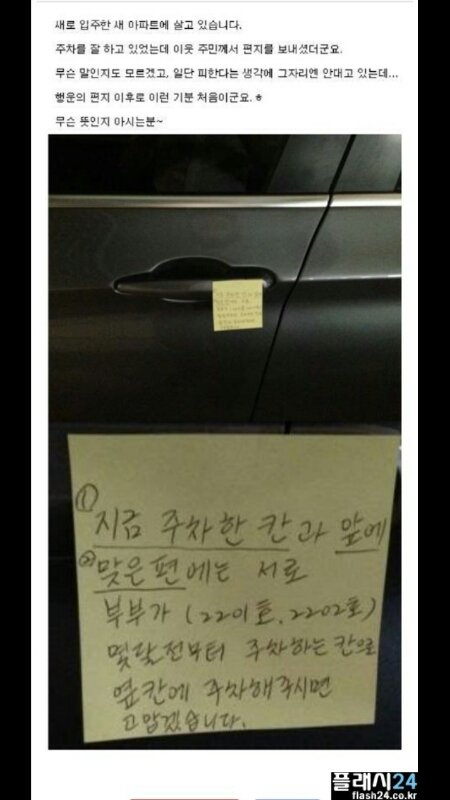 새로 입주한 새 아파트에 살고 있습니다.
주차를 잘 하고 있었는데 이웃 주민께서 편지를 보내셨더군요.
무슨 말인지도 모르겠고, 일단 피한다는 생각에 그자리엔 안대고 있는데...
행운의 편지 이후로 이런 기분 처음이군요.ㅎ
무슨 뜻인지 아시는분~
① 지금 주차한 칸과 앞에
② 맞은편에는 서로
부부가 (2201호, 2202호)
몇달전부터 주차하는 칸으로
옆칸에 주차해주시면
고맙겠습니다.
플래시24
flash24.co.kr